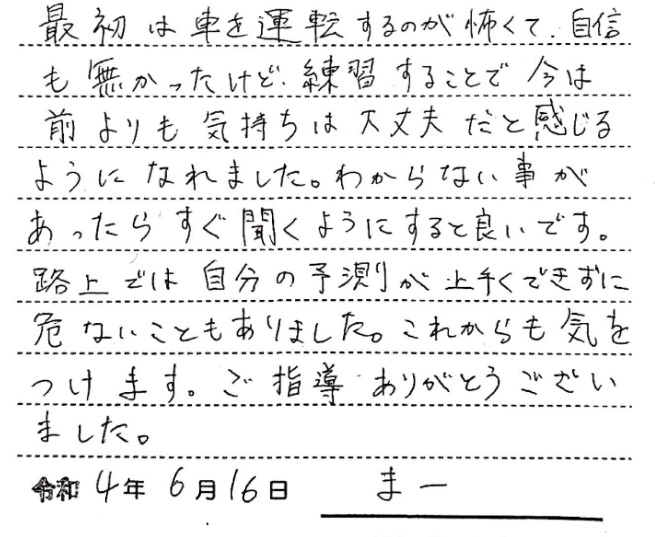 最初は車を運転するのが怖くて、自信
も無かったけど、練習することで今は
前よりも気持ちは大丈夫だと感じる
ようになれました。わからない事が
あったらすぐ聞くようにすると良いです。
路上では自分の予測が上手くできずに
危ないこともありました。これからも気を
つけます。ご指導ありがとうござい
ました。
令和4年6月16日 まー